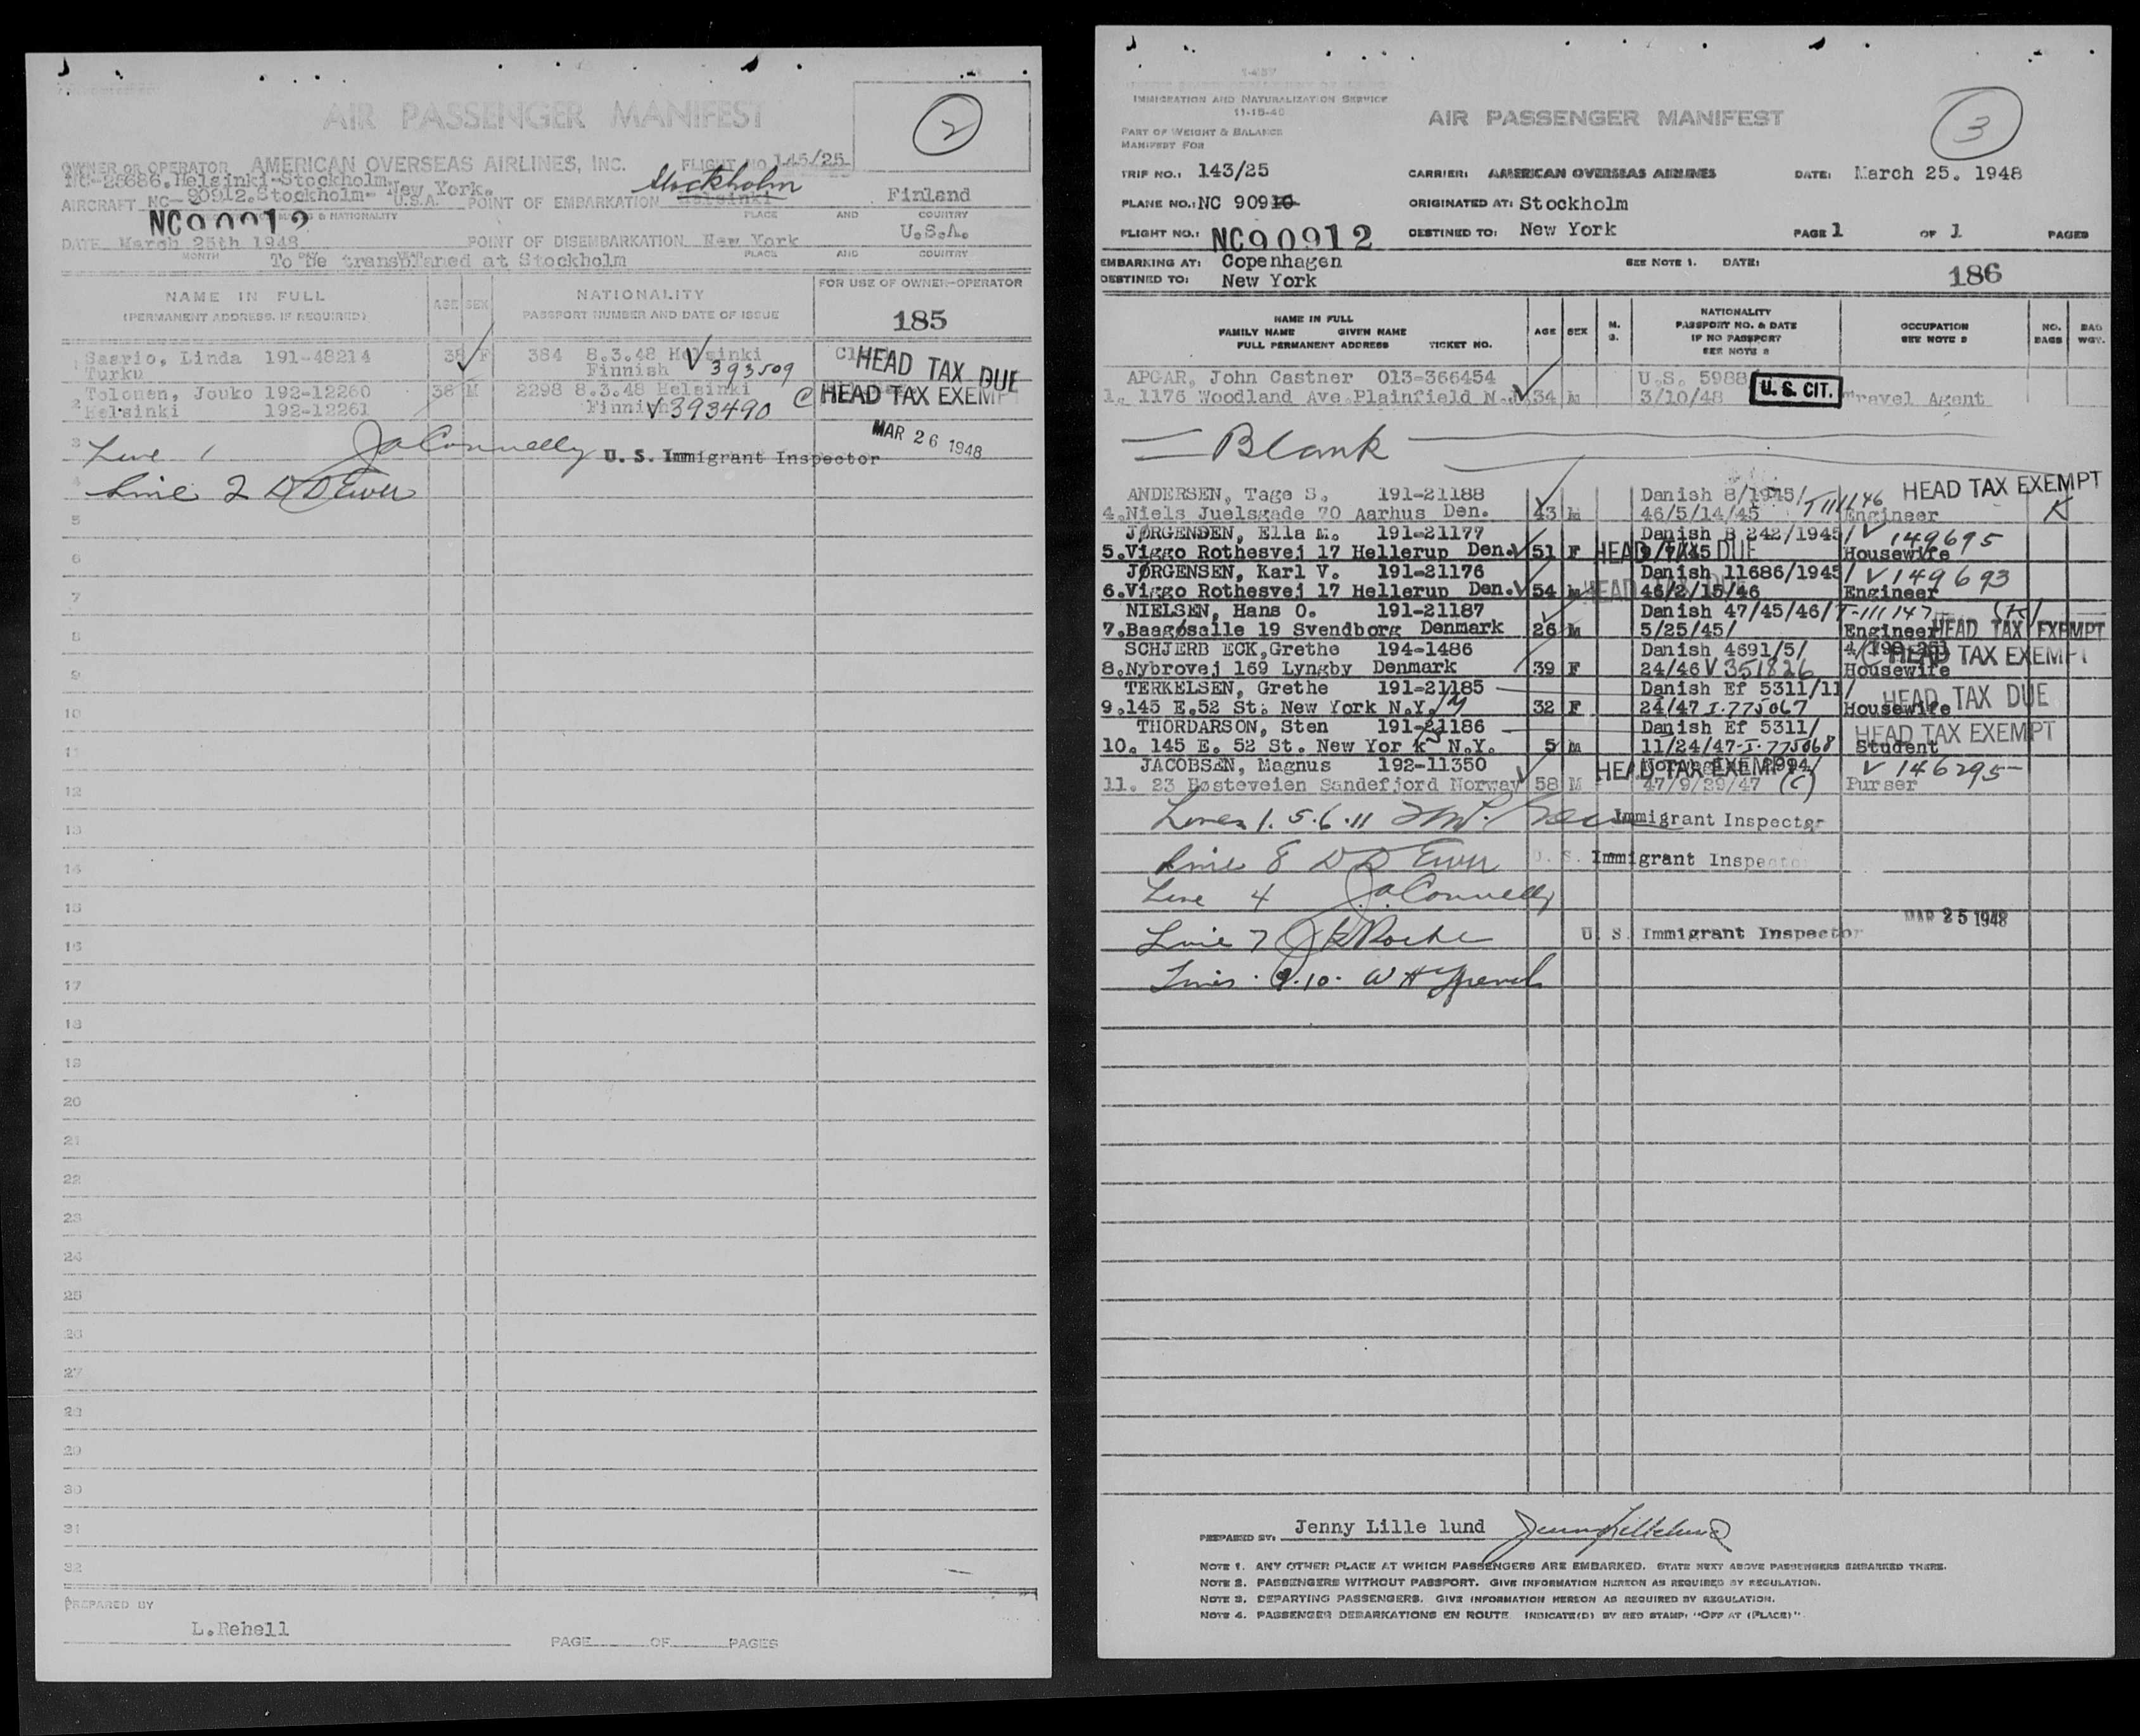 AIR PASSENGER MANIFEST
2
OWNER OR OPERATOR AMERICAN OVERSEAS AIRLINES, INC. FLIGHT NO 145/25
NC-28686.Helsinki-Stockholm
AIRCRAFT NC-90912.Stockholm-New York. U.S.A.
NC90912
POINT OF EMBARKATION Stockholm Helsinki Finland
PLACE AND COUNTRY
DATE March 25th 1948 POINT OF DISEMBARKATION New York U.S.A.
MONTH PLACE AND COUNTRY
To be transplaned at Stockholm
NAME IN FULL AGE SEX NATIONALITY FOR USE OF OWNER-OPERATOR
(PERMANENT ADDRESS, IF REQUIRED) PASSPORT NUMBER AND DATE OF ISSUE 185
1 Saario, Linda 191-48214 38 F 384 8.3.48 Helsinki V 393509 HEAD TAX DUE
Turku Finnish
2 Tolonen, Jouko 192-12260 36 M 2298 8.3.48 Helsinki C HEAD TAX EXEMPT
Helsinki 192-12261 Finnish V393490
MAR 26 1948
3 Line 1 JaConnelly U. S. Immigrant Inspector
4 Line 2 D D Ewer
5
6
7
8
9
10
11
12
13
14
15
16
17
18
19
20
21
22
23
24
25
26
27
28
29
30
31
32
PREPARED BY
L.Rehell
PAGE OF PAGES
IMMIGRATION AND NATURALIZATION SERVICE
11-15-46
PART OF WEIGHT & BALANCE
MANIFEST FOR
AIR PASSENGER MANIFEST
3
TRIP NO.: 143/25 CARRIER: AMERICAN OVERSEAS AIRLINES DATE: March 25. 1948
PLANE NO.: NC 90910 ORIGINATED AT: Stockholm
FLIGHT NO.: NC90912 DESTINED TO: New York PAGE 1 OF 1 PAGES
EMBARKING AT: Copenhagen SEE NOTE 1. DATE:
DESTINED TO: New York 186
NAME IN FULL
FAMILY NAME GIVEN NAME
FULL PERMANENT ADDRESS TICKET NO.
AGE SEX M. S.
NATIONALITY
PASSPORT NO. & DATE
IF NO PASSPORT
SEE NOTE 2
OCCUPATION
SEE NOTE 3
NO. BAGS
BAG WGT.
APGAR, John Castner 013-366454 U.S. 5988
1. 1176 Woodland Ave.Plainfield N.J. 34 M 3/10/48 U. S. CIT. Travel Agent
Blank
ANDERSEN, Tage S. 191-21188 Danish 8/1945/ T111146 HEAD TAX EXEMPT
4.Niels Juelsgade 70 Aarhus Den. 43 M 46/5/14/45 Engineer K
JØRGENDEN, Ella M. 191-21177 Danish B 242/1945/ V 149695
5.Viggo Rothesvej 17 Hellerup Den. 51 F HEAD TAX DUE Housewife
JØRGENSEN, Karl V. 191-21176 Danish 11686/1945/ V149693
6.Viggo Rothesvej 17 Hellerup Den. 54 M HEAD TAX DUE 46/2/15/46 Engineer
NIELSEN, Hans O. 191-21187 Danish 47/45/46/ T-111147 (K)
7.Baagøsalle 19 Svendborg Denmark 26 M 5/25/45/ Engineer HEAD TAX EXEMPT
SCHJERB ECK,Grethe 194-1486 Danish 4691/5/ HEAD TAX EXEMPT
8.Nybrovej 169 Lyngby Denmark 39 F 24/46 V 351826 Housewife
TERKELSEN, Grethe 191-21185 Danish Ef 5311/11/ HEAD TAX DUE
9.145 E.52 St. New York N.Y. 32 F 24/47 I-775067 Housewife
THORDARSON, Sten 191-21186 Danish Ef 5311/ HEAD TAX EXEMPT
10. 145 E. 52 St. New Yor k N.Y. 5 M 11/24/47-I-775068 Student
JACOBSEN, Magnus 192-11350 HEAD TAX EXEMPT V 146295
11. 23 Høsteveien Sandefjord Norway 58 M 47/9/29/47 (C) Purser
Lines 1. 5.6.11 Immigrant Inspector
Line 8 D D Ewer U. S. Immigrant Inspector
Line 4 J.a.Connelly
MAR 25 1948
Line 7 J K Roche U. S. Immigrant Inspector
Lines 9.10. W H
PREPARED BY: Jenny Lille lund Jenny Lillelund
NOTE 1. ANY OTHER PLACE AT WHICH PASSENGERS ARE EMBARKED. STATE NEXT ABOVE PASSENGERS EMBARKED THERE.
NOTE 2. PASSENGERS WITHOUT PASSPORT. GIVE INFORMATION HEREON AS REQUIRED BY REGULATION.
NOTE 3. DEPARTING PASSENGERS. GIVE INFORMATION HEREON AS REQUIRED BY REGULATION.
NOTE 4. PASSENGER DEBARKATIONS EN ROUTE. INDICATE(D) BY RED STAMP: "OFF AT (PLACE)".